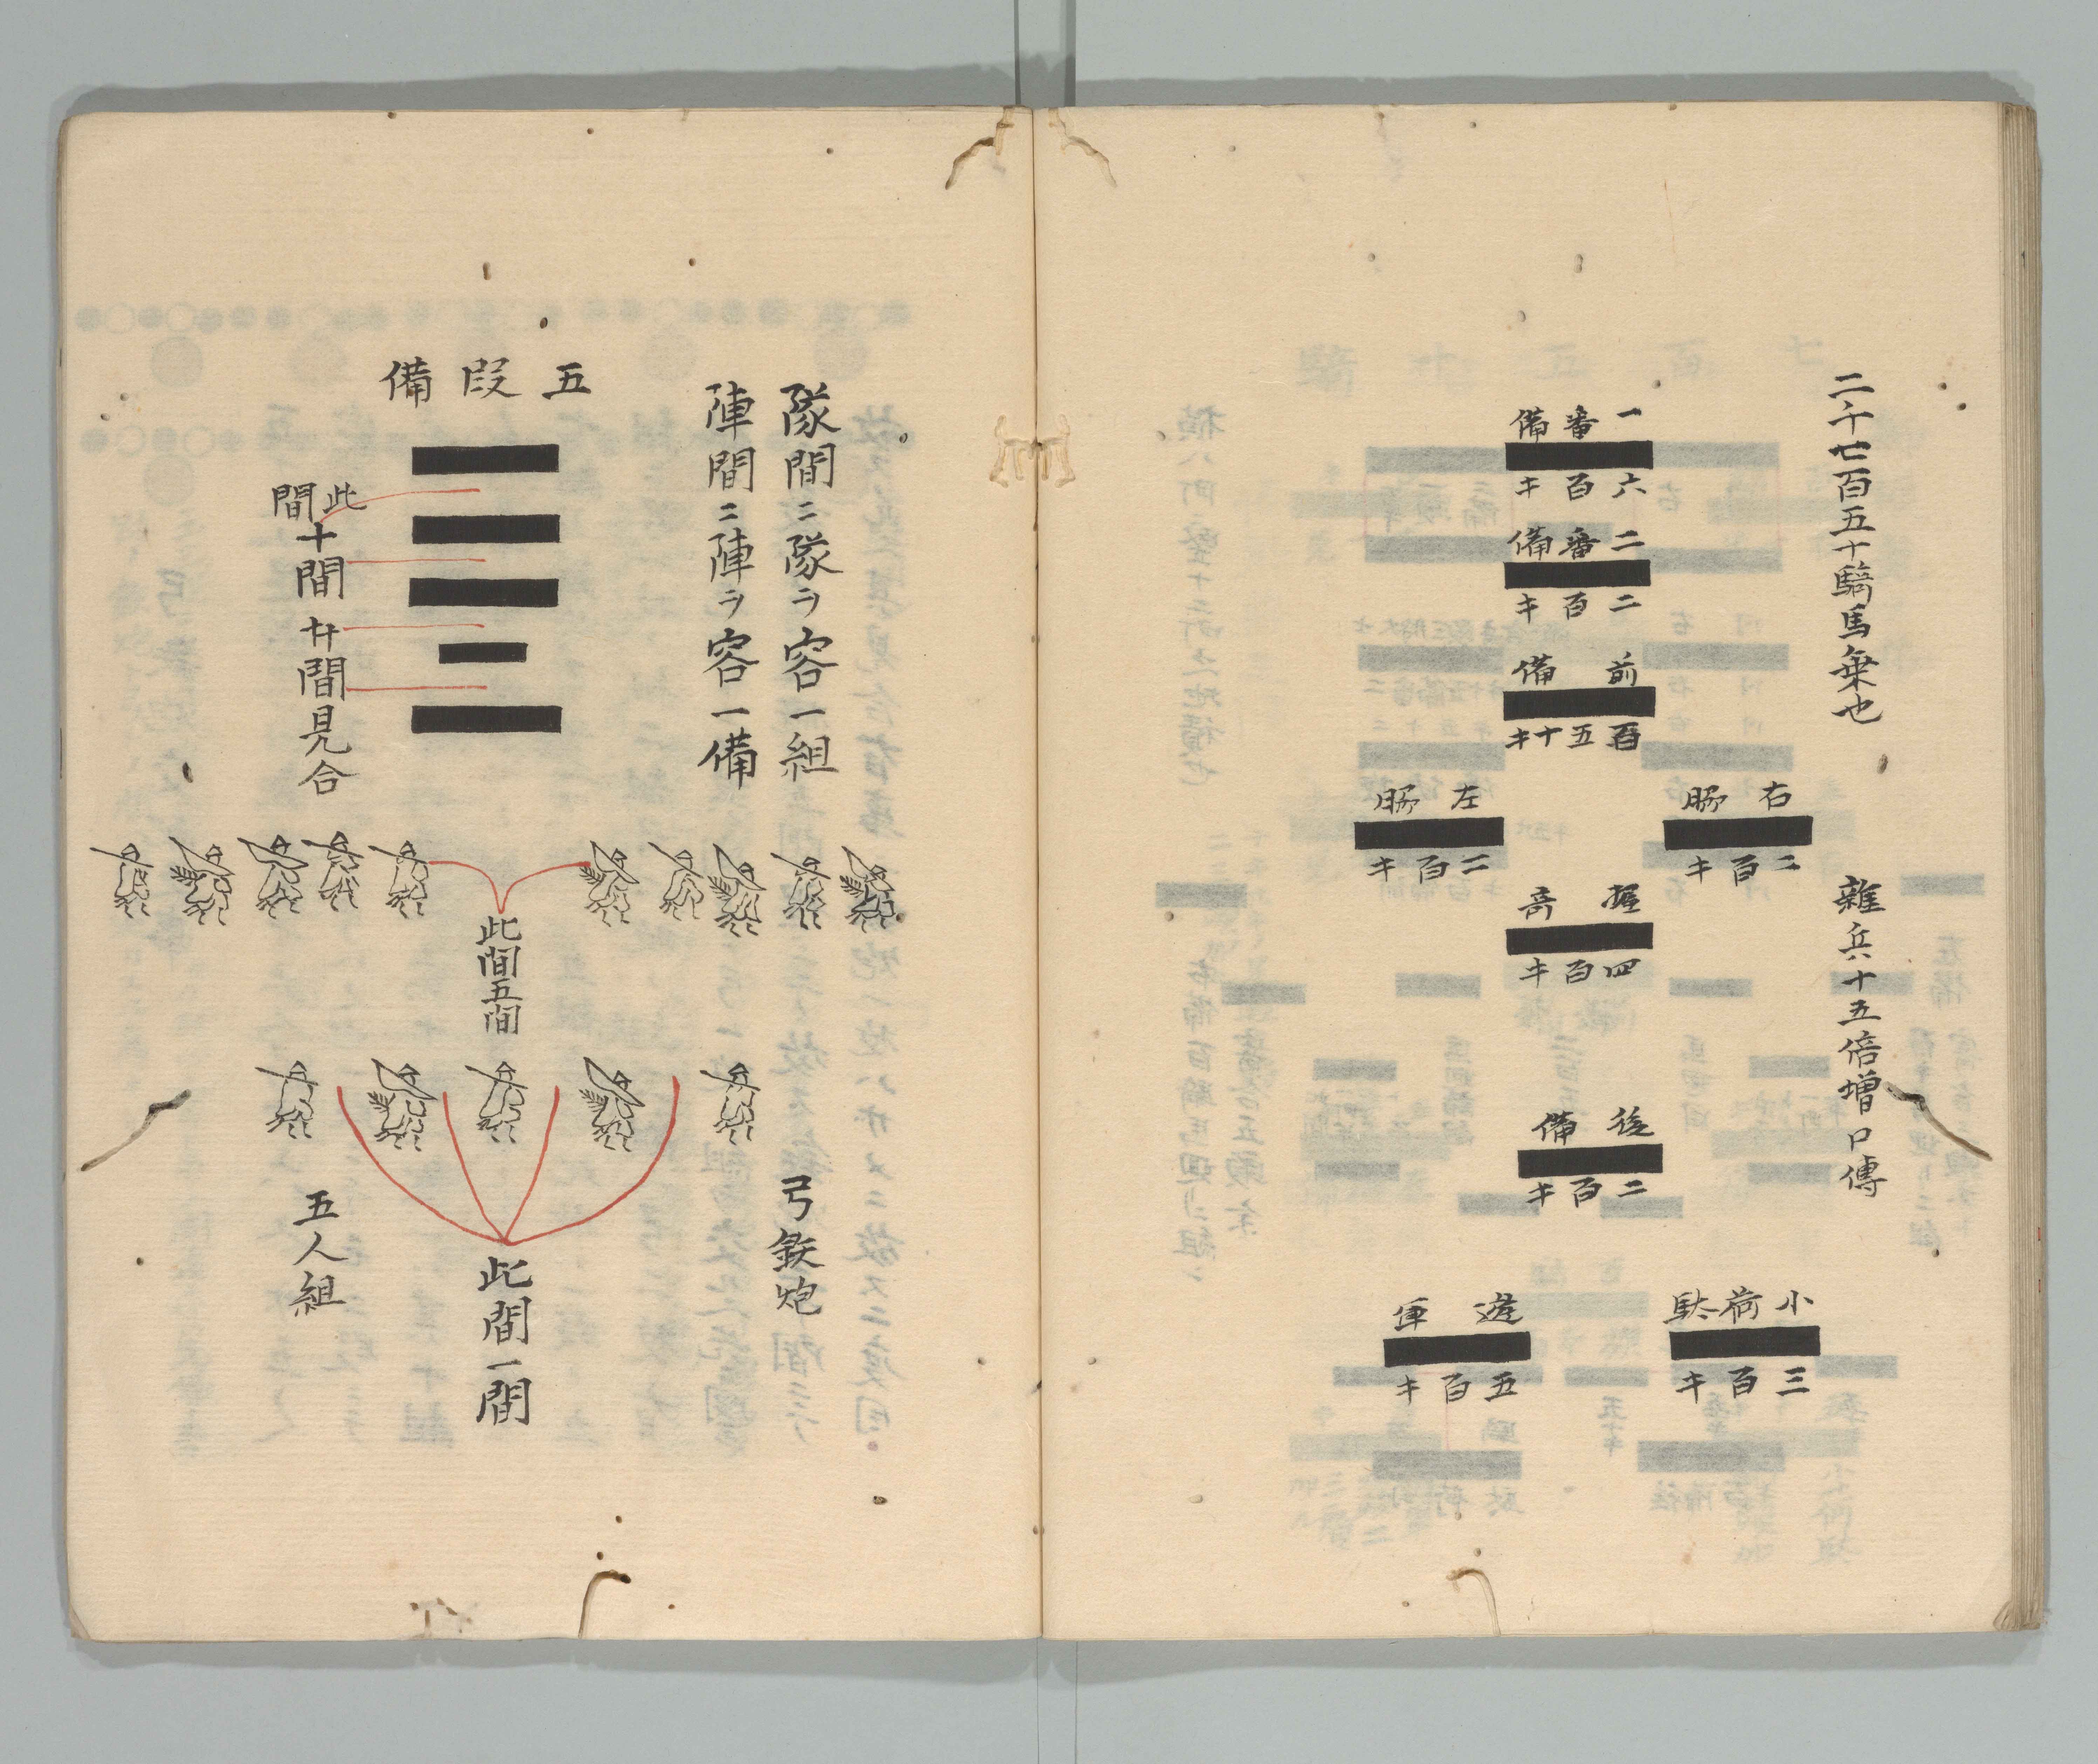 二千七百五十騎馬乗也
雜兵十五倍増口傳
一番備
六百キ
二番備
二百キ
前備
百五十キ
右脇
二百キ
左脇
二百キ
握奇
四百キ
後備
二百キ
小荷駄
三百キ
遊軍
五百キ
隊間ニ隊ヲ容一組
陣間ニ陣ヲ容一備
五段備
此間十間廿間見合
此間五間
弓鉄炮
此間一間
五人組